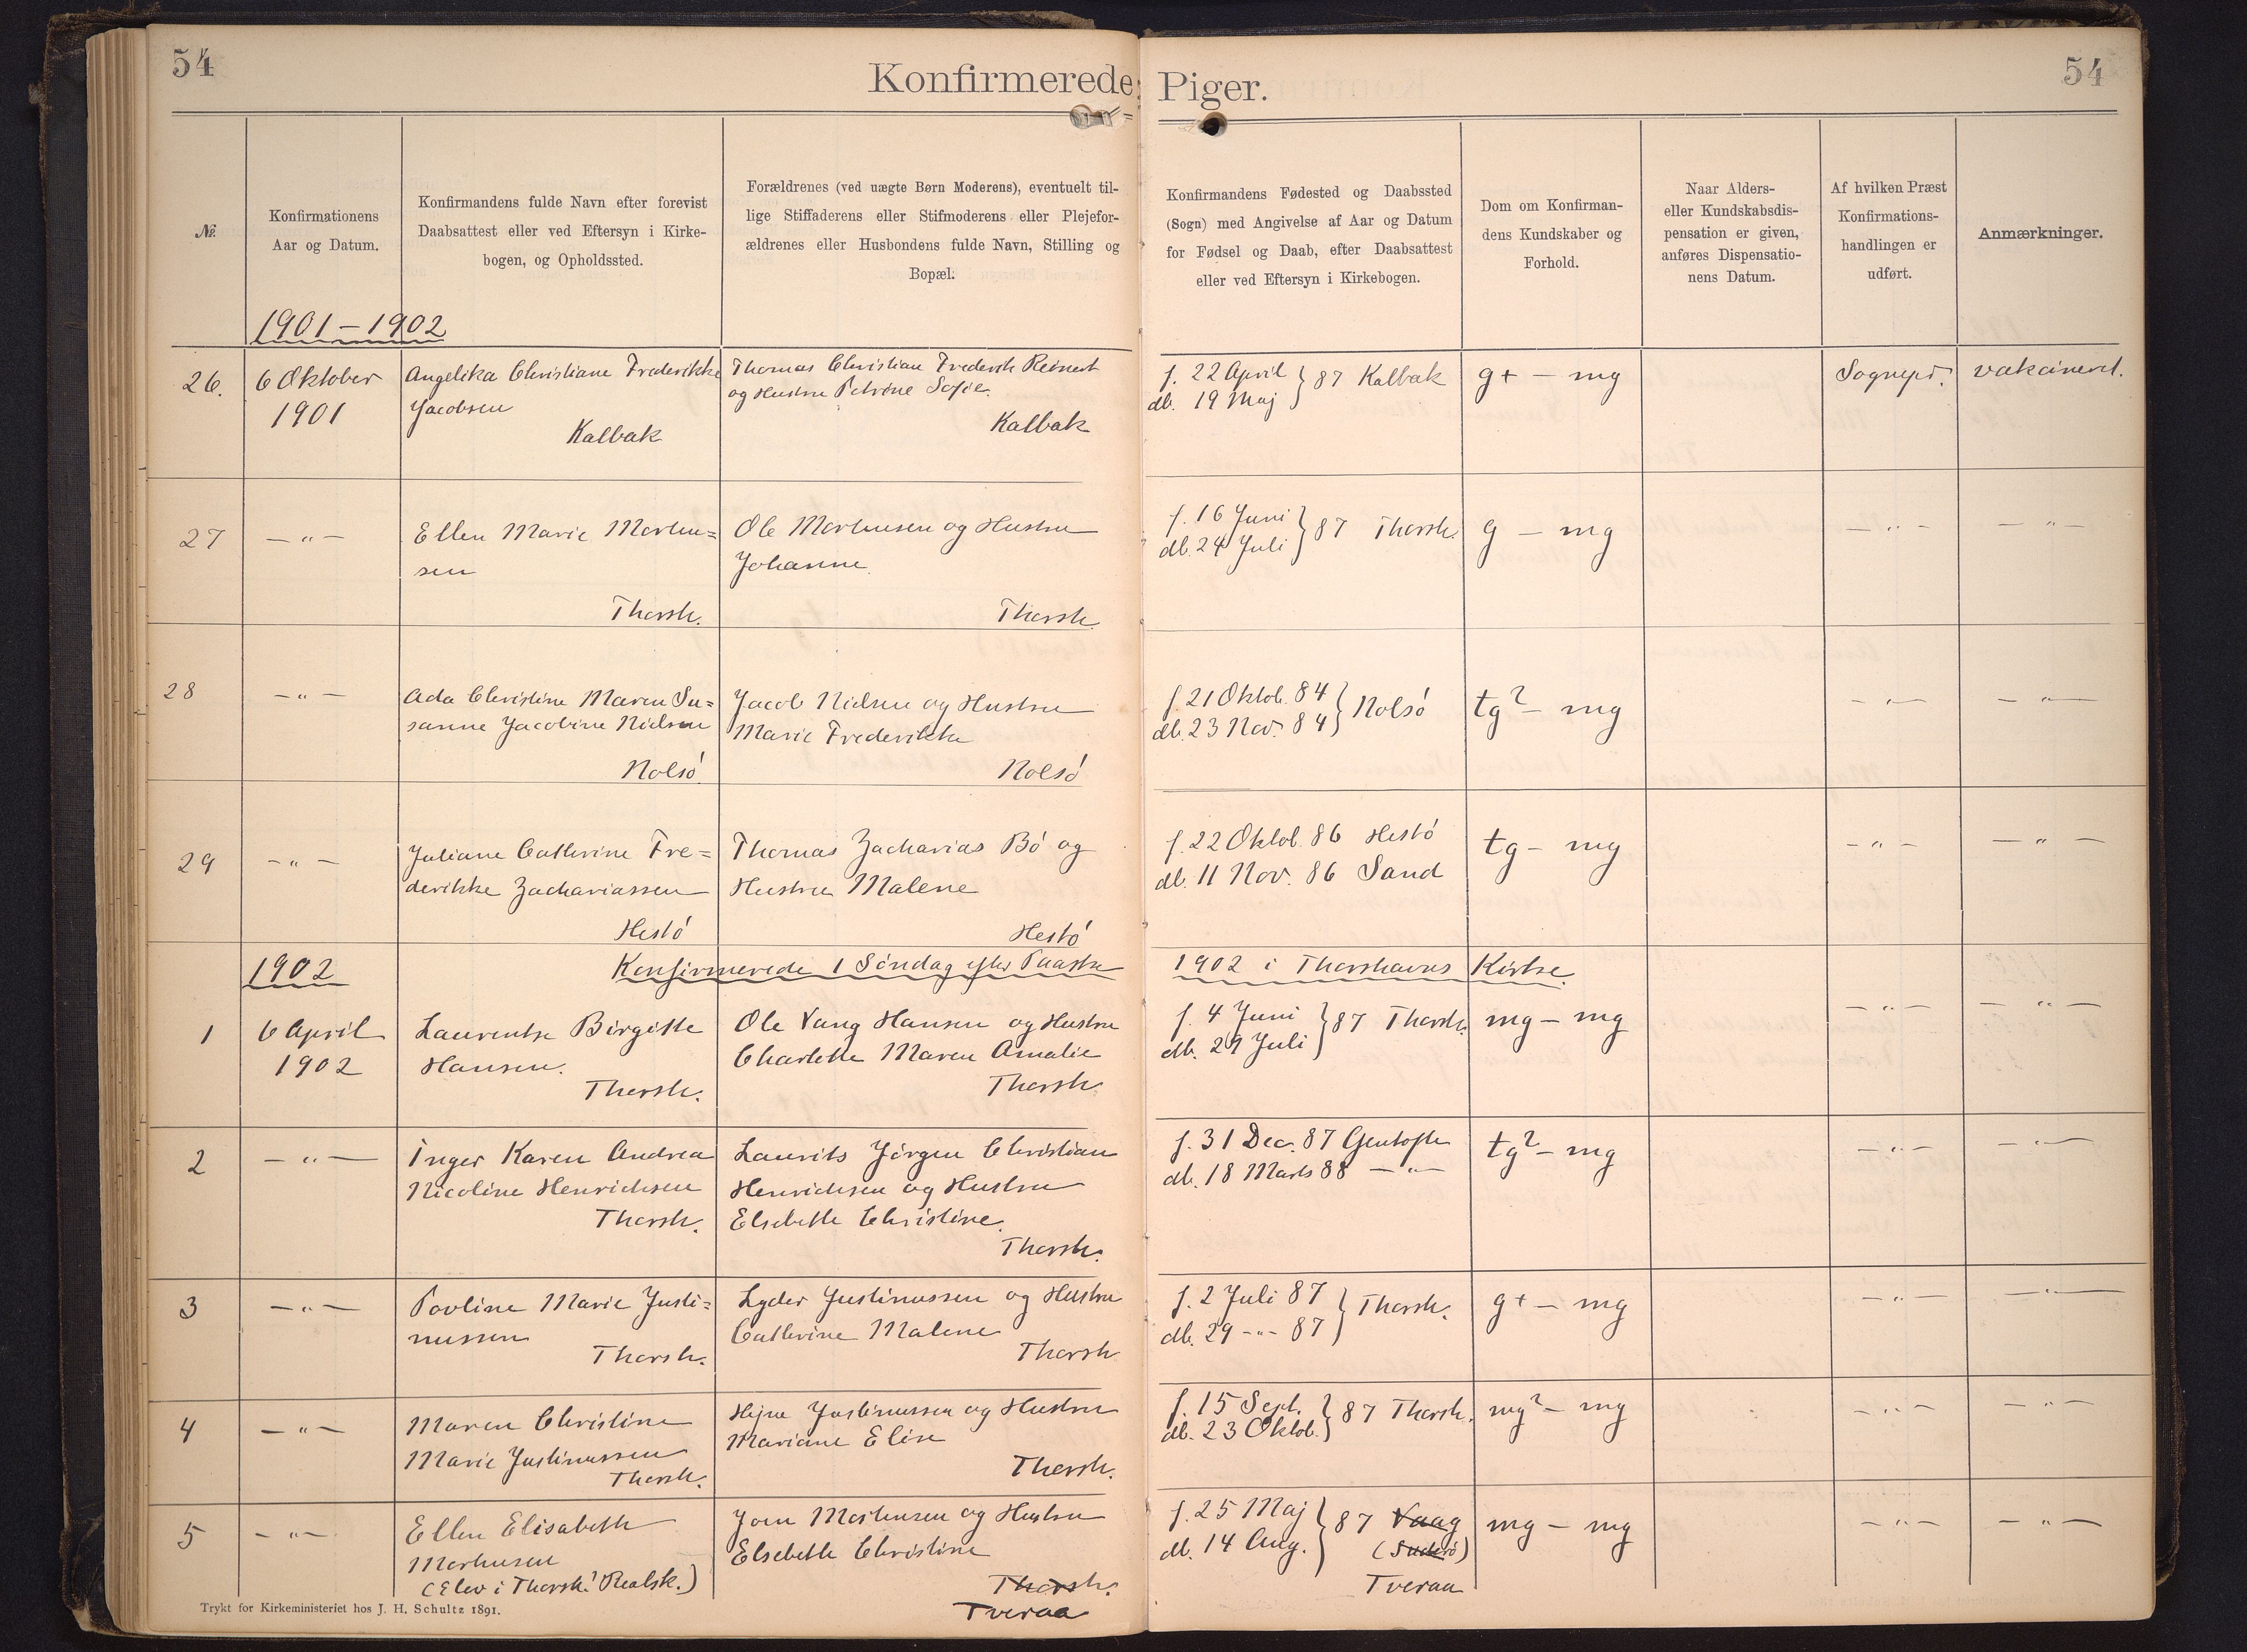 54
Konfirmerede Piger.
54
№
Konfirmationens
Aar og Datum.
Konfirmandens fulde Navn efter forevist
Daabsattest eller ved Eftersyn i Kirke-
bogen, og Opholdssted.
Forældrenes (ved uægte Børn Moderens), eventuelt til-
lige Stiffaderens eller Stifmoderens eller Plejefor-
ældrenes eller Husbondens fulde Navn, Stilling og
Bopæl.
Konfirmandens Fødested og Daabssted
(Sogn) med Angivelse af Aar og Datum
for Fødsel og Daab, efter Daabsattest
eller ved Eftersyn i Kirkebogen.
Dom om Konfirman-
dens Kundskaber og
Forhold.
Naar Alders-
eller Kundskabsdis-
pensation er given,
anføres Dispensatio-
nens Datum.
Af hvilken Præst
Konfirmations-
handlingen er
udført.
Anmærkninger.
1901-1902
26.
6 Oktober
1901
Angelika Christiane Frederikke
Jacobsen
Kalbak
Thomas Christian Frederik Reinert
og Hustru Petrine Sofie.
Kalbak
f. 22 April
db. 19 Maj } 87 Kalbak
g+ - mg
Sognepr.
vakcineret.
27
-"-
Ellen Marie Morten=
sen
Thorsh.
Ole Mortensen og Hustru
Johanne
Thorsh.
f. 16 Juni
db. 24 Juli } 87 Thorsh.
g - mg
-"-
-"-
28
-"-
Ada Christine Maren Su=
sanne Jacobine Nielsen
Nolsó.
Jacob Nielsen og Hustru
Marie Frederikke
Nolsó
f. 21 Oktob. 84
db. 23 Nov. 84 } Nolsó
tg? - mg
-"-
-"-
29
-"-
Juliane Cathrine Fre=
derikke Zachariassen
Hestó
Thomas Zacharias Bó og
Hustru Malene
Hestó
f. 22 Oktob. 86 Hestó
db. 11 Nov. 86 Sand
tg - mg
-"-
-"-
1902
Konfirmerede 1 Söndag efter Paaske 1902 i Thorshavns Kirke.
1
6 April
1902
Laurentse Birgitte
Hansen.
Thorsh.
Ole Vang Hansen og Hustru
Charlotte Maren Amalie
Thorsh.
f. 4 Juni
db. 29 Juli } 87 Thorsh.
mg - mg
-"-
-"-
2
-"-
Inger Karen Andrea
Nicoline Henrichsen
Thorsh.
Laurits Jörgen Christian
Henrichsen og Hustru
Elsebeth Christine.
Thorsh.
f. 31 Dec. 87 Gentofte
db. 18 Marts 88 -"-
tg? - mg
-"-
-"-
3
-"-
Povline Marie Justi=
nussen
Thorsh.
Lyder Justinussen og Hustru
Cathrine Malene
Thorsh
f. 2 Juli 87
db. 29 -"- 87 } Thorsh.
g+ - mg
-"-
-"-
4
-"-
Maren Christine
Marie Justinussen
Thorsh.
Hejne Justinussen og Hustru
Mariane Elise
Thorsh.
f. 15 Sept.
db. 23 Oktob. } 87 Thorsh.
mg? - mg
-"-
-"-
5
-"-
Ellen Elisabeth
Mortensen
(Elev i Thorsh. Realsk.)
Joen Mortensen og Hustru
Elsebeth Christine
Thorsh.
Tveraa
f. 25 Maj
db. 14 Aug. } 87 Vaag
(Suderó)
Tveraa
mg - mg
-"-
-"-
Trykt for Kirkeministeriet hos J. H. Schultz 1891.